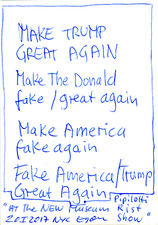 MAKE TRUMP
GREAT AGAIN
Make The Donald
fake / great again
Make America
fake again
Fake America/Trump
Great Again
"AT THE NEW MUSEUM
Pipilotti
Rist
Show"
20.1.2017 NYC